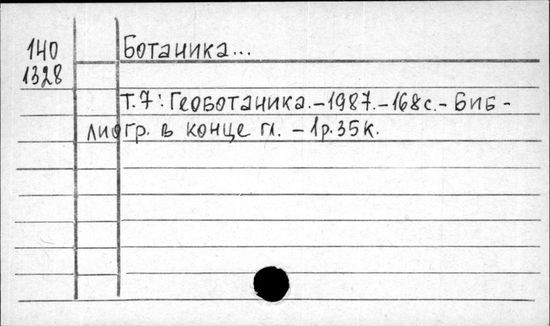 140
1328
Ботаника...
Т.7: Геоботаника.-1987.-168с.-Биб-
лиогр. в конце гл. -1р.35к.